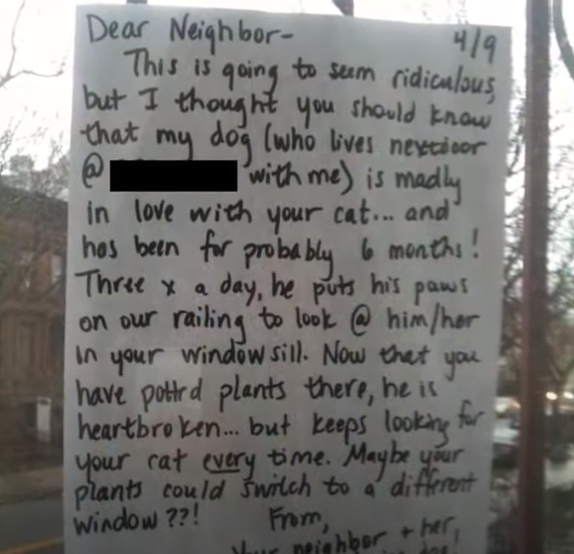 Dear Neighbor- 4/9
This is going to seem ridiculous,
but I thought you should know
that my dog (who lives nextdoor
@ with me) is madly
in love with your cat... and
has been for probably 6 months!
Three x a day, he puts his paws
on our railing to look @ him/her
in your windowsill. Now that you
have potted plants there, he is
heartbroken... but keeps looking for
your cat every time. Maybe your
plants could switch to a different
window??!
From,
Your neighbor + her